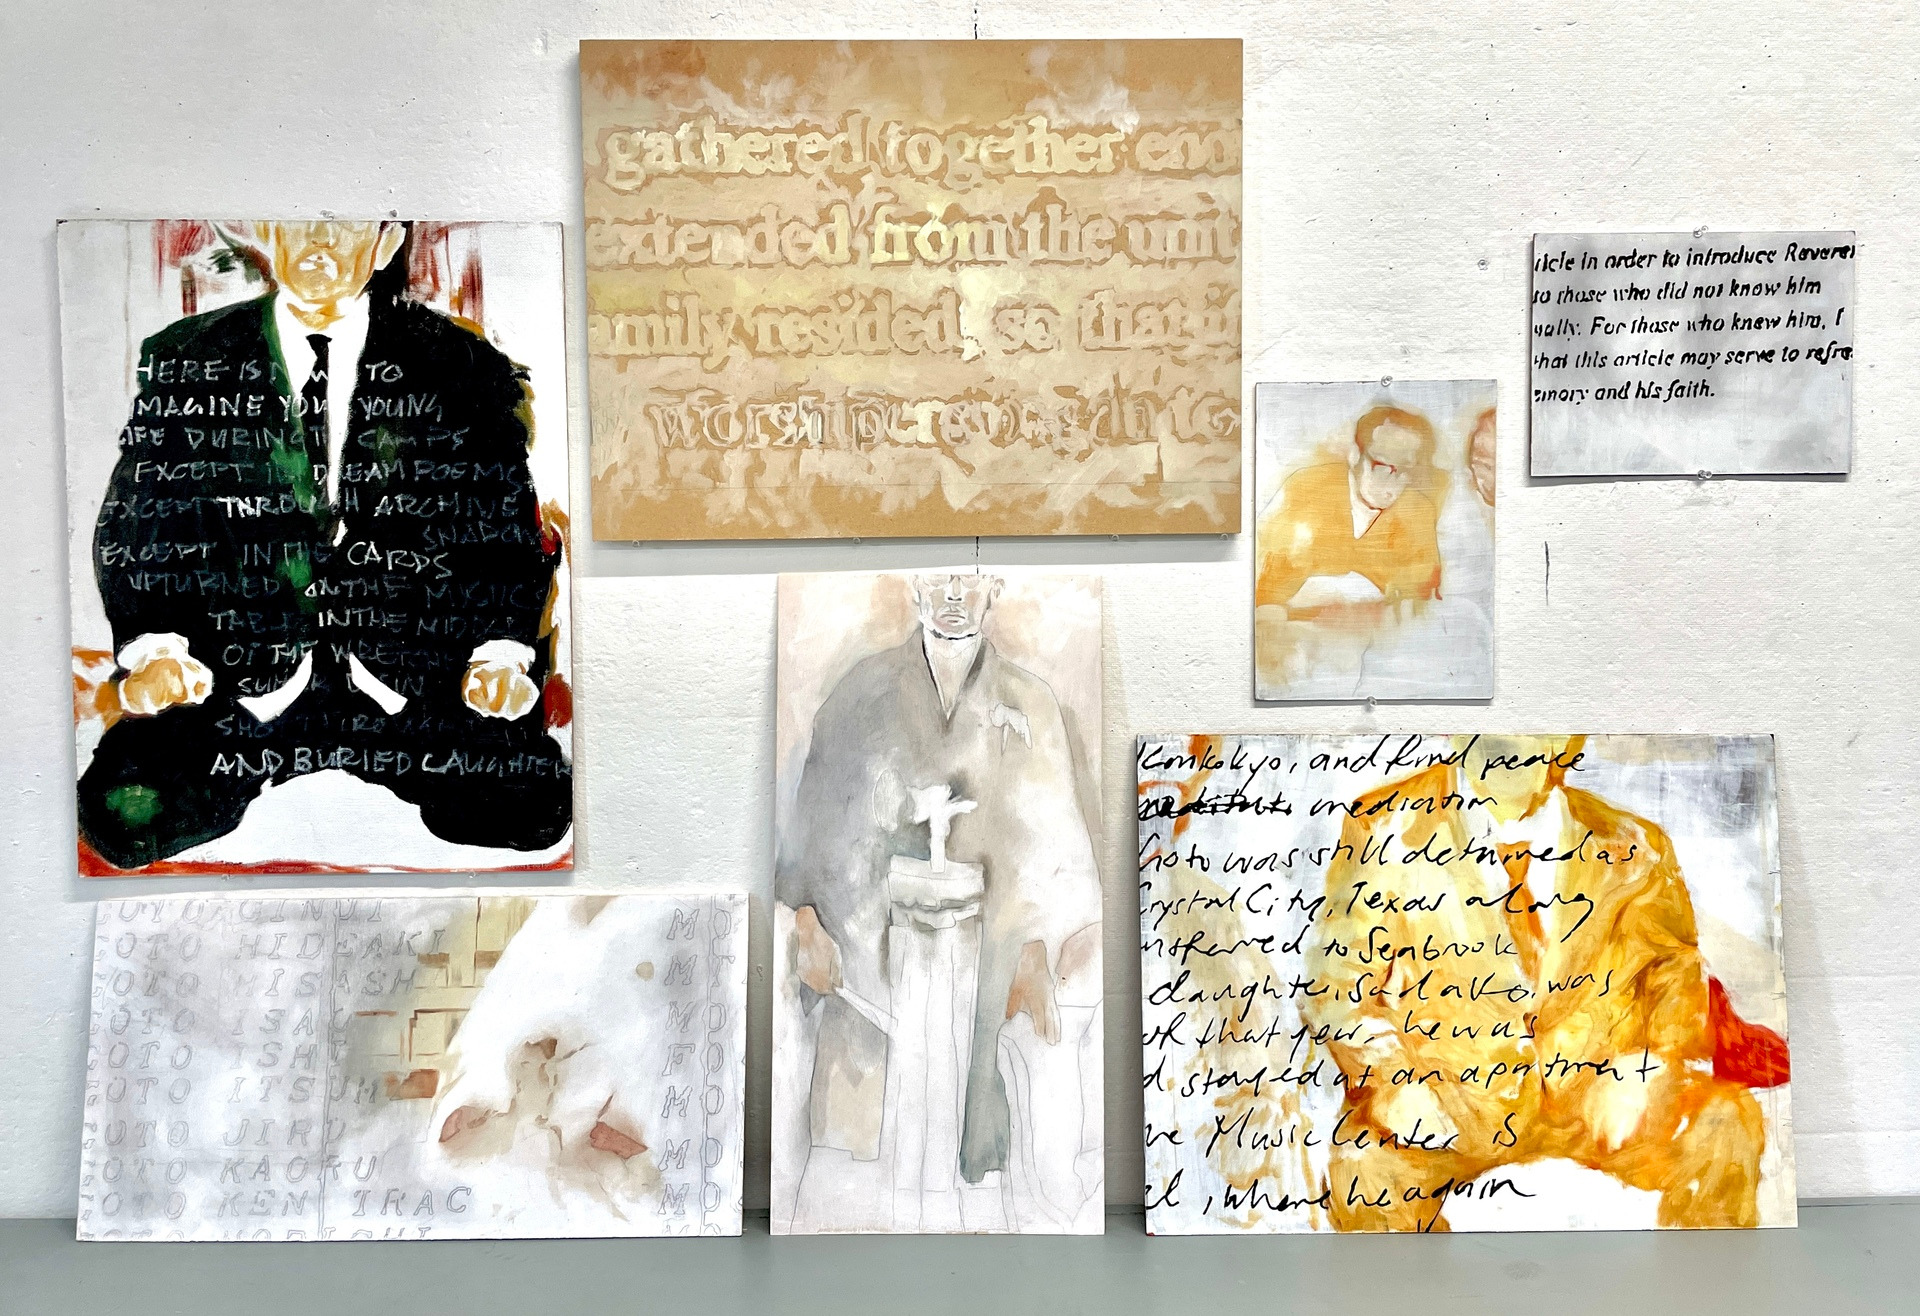 HERE IS NO TO
IMAGINE YOUR YOUNG
LIFE DURING CAMPS
EXCEPT IN DREAM POEMS
EXCEPT THROUGH ARCHIVE
EXCEPT IN THE CARDS
UPTURNED ON THE MUSIC
TABLE IN THE MIDDLE
OF THE
AND BURIED LAUGHTER
gathered together
extended from the unit
amily resided, so that
ricle in order to introduce Reveren
to those who did not know him
ually. For those who knew him, I
that this article may serve to refre
emory and his faith.
GOTO HIDEAKI
GOTO HISASH
GOTO ISA
GOTO ISH
GOTO ITSUM
GOTO JIRO
GOTO KAORU
GOTO KEN TRAC
MO
MT
MO
FO
MO
MO
MO
Konkokyo, and find peace
mediation
Goto was still detained as
Crystal City, Texas along
nsferred to Seabrook
daughter, Sadako, was
of that year, he was
d stayed at an apartment
ve Music Center is
el, where he again